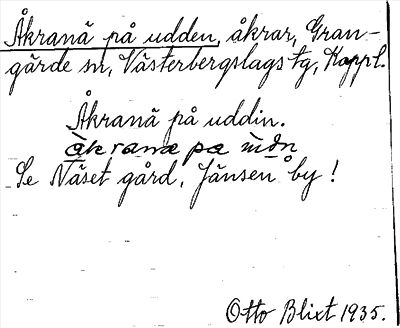 Åkranä på udden, åkrar, Gran-
gärde sn, Västerbergslags tg, Koppl.
Åkranä på uddin.
Se Näset gård, Jänsen by!
Otto Blixt 1935.